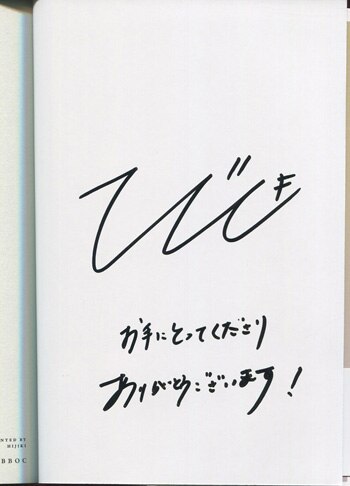 ひじき
お手にとってくださり
ありがとうございます!
NTED BY
HIJIKI
BBOC